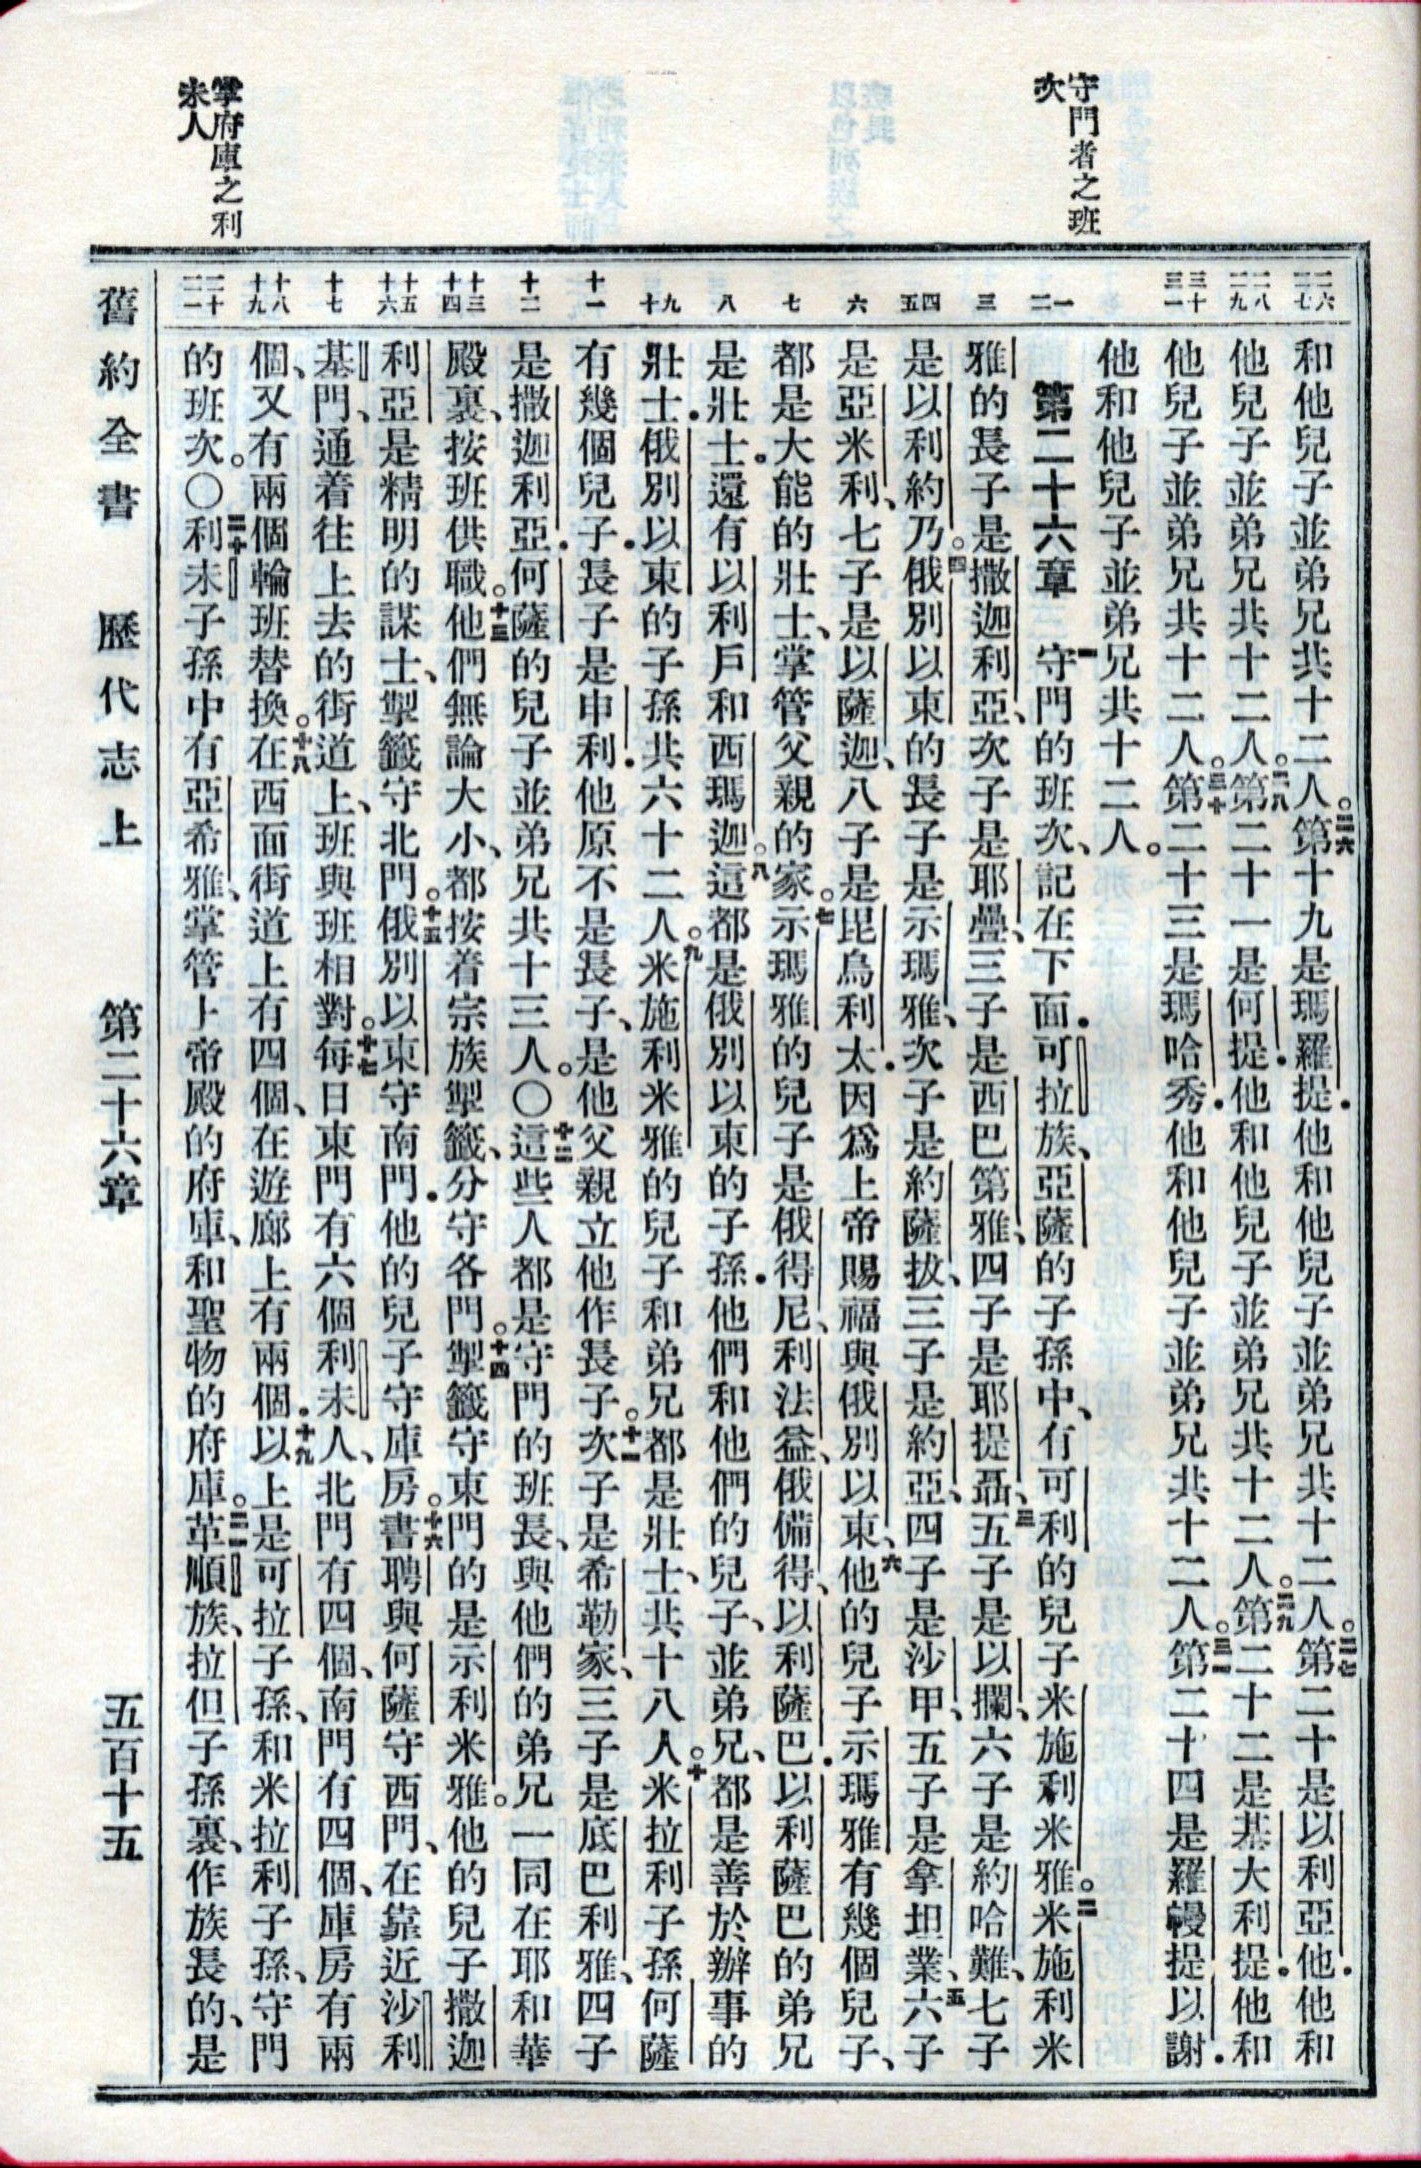 守門者之班
次
掌府庫之利
未人
二六 二七
二八 二九
三十 三一
一 二
三
四 五
六
七
八
九 十
十一
十二
十三 十四
十五 十六
十七
十八 十九
二十 二一
和他兒子並弟兄共十二人。二六第十九是瑪羅提.他和他兒子並弟兄共十二人。二七第二十是以利亞他.他和
他兒子並弟兄共十二人。二八第二十一是何提.他和他兒子並弟兄共十二人。二九第二十二是基大利提.他和
他兒子並弟兄共十二人。三十第二十三是瑪哈秀.他和他兒子並弟兄共十二人。三一第二十四是羅幔提以謝.
他和他兒子並弟兄共十二人。
第二十六章 一守門的班次、記在下面.可拉族、亞薩的子孫中、有可利的兒子米施利米雅。二米施利米
雅的長子是撒迦利亞、次子是耶疊、三子是西巴第雅、四子是耶提聶、三五子是以攔、六子是約哈難、七子
是以利約乃。四俄別以東的長子是示瑪雅、次子是約薩拔、三子是約亞、四子是沙甲、五子是拿坦業、五六子
是亞米利、七子是以薩迦、八子是毘烏利太.因爲上帝賜福與俄別以東、六他的兒子示瑪雅有幾個兒子、
都是大能的壯士、掌管父親的家。七示瑪雅的兒子是俄得尼、利法益、俄備得、以利薩巴.以利薩巴的弟兄
是壯士。還有以利戶和西瑪迦。八這都是俄別以東的子孫.他們和他們的兒子、並弟兄、都是善於辦事的
壯士.俄別以東的子孫共六十二人。九米施利米雅的兒子和弟兄都是壯士、共十八人。十米拉利子孫何薩
有幾個兒子.長子是申利.他原不是長子、是他父親立他作長子。十一次子是希勒家、三子是底巴利雅、四子
是撒迦利亞.何薩的兒子並弟兄共十三人。〇十二這些人都是守門的班長、與他們的弟兄一同在耶和華
殿裏、按班供職。十三他們無論大小、都按着宗族掣籤、分守各門。十四掣籤守東門的是示利米雅。他的兒子撒迦
利亞是精明的謀士、掣籤守北門。十五俄別以東守南門.他的兒子守庫房。十六書聘與何薩守西門、在靠近沙利
基門、通着往上去的街道上、班與班相對。十七每日東門有六個利未人、北門有四個、南門有四個、庫房有兩
個、又有兩個輪班替換。十八在西面街道上有四個、在遊廊上有兩個.十九以上是可拉子孫、和米拉利子孫、守門
的班次。〇二十利未子孫中有亞希雅、掌管上帝殿的府庫、和聖物的府庫。二一革順族、拉但子孫裏、作族長的、是
舊約全書 歷代志上 第二十六章 五百十五